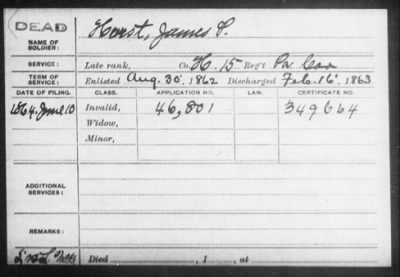 DEAD
NAME OF SOLDIER: Horst, James P.
SERVICE: Late rank, Co. H. 15 Reg't Pa. Cav
TERM OF SERVICE: Enlisted Aug. 30, 1862 Discharged Feb. 16, 1863
DATE OF FILING. CLASS. APPLICATION NO. LAW. CERTIFICATE NO.
1864. June 10 Invalid, 46,801 349664
Widow,
Minor,
ADDITIONAL SERVICES:
REMARKS:
Died , 1 , at